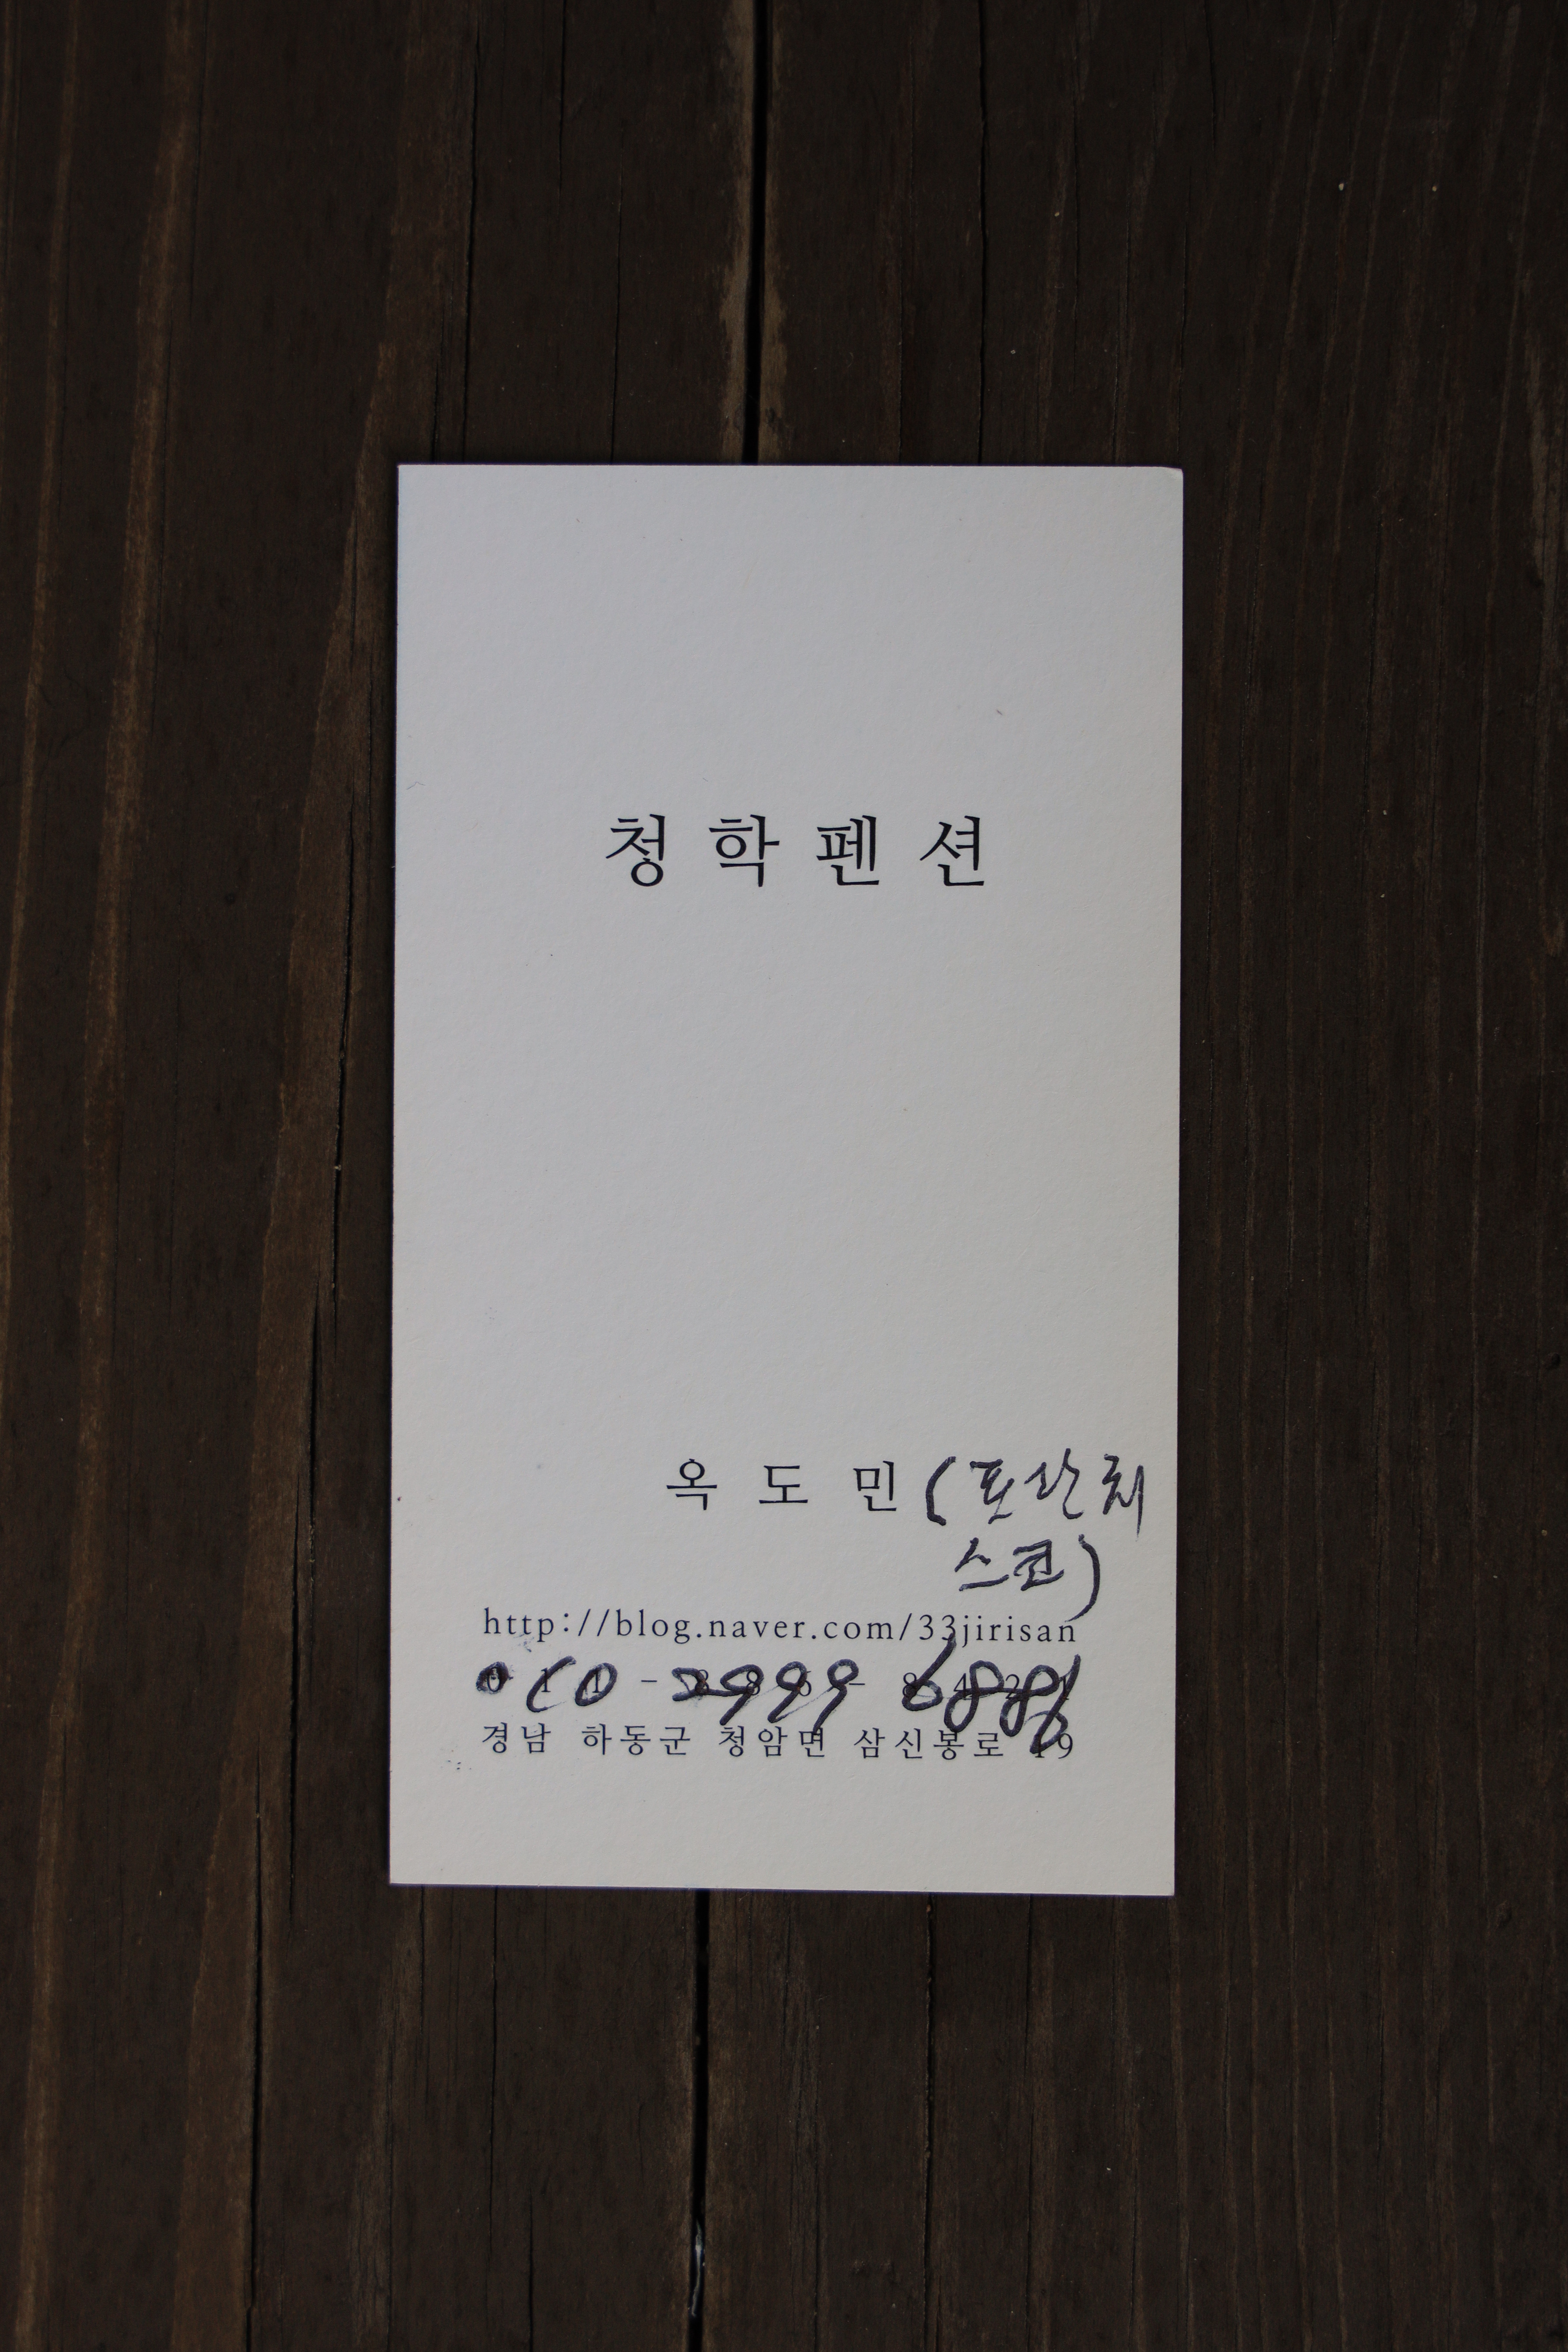 청학펜션
옥도민(프란치
스코)
http://blog.naver.com/33jirisan
010-2999-6886
경남 하동군 청암면 삼신봉로 19